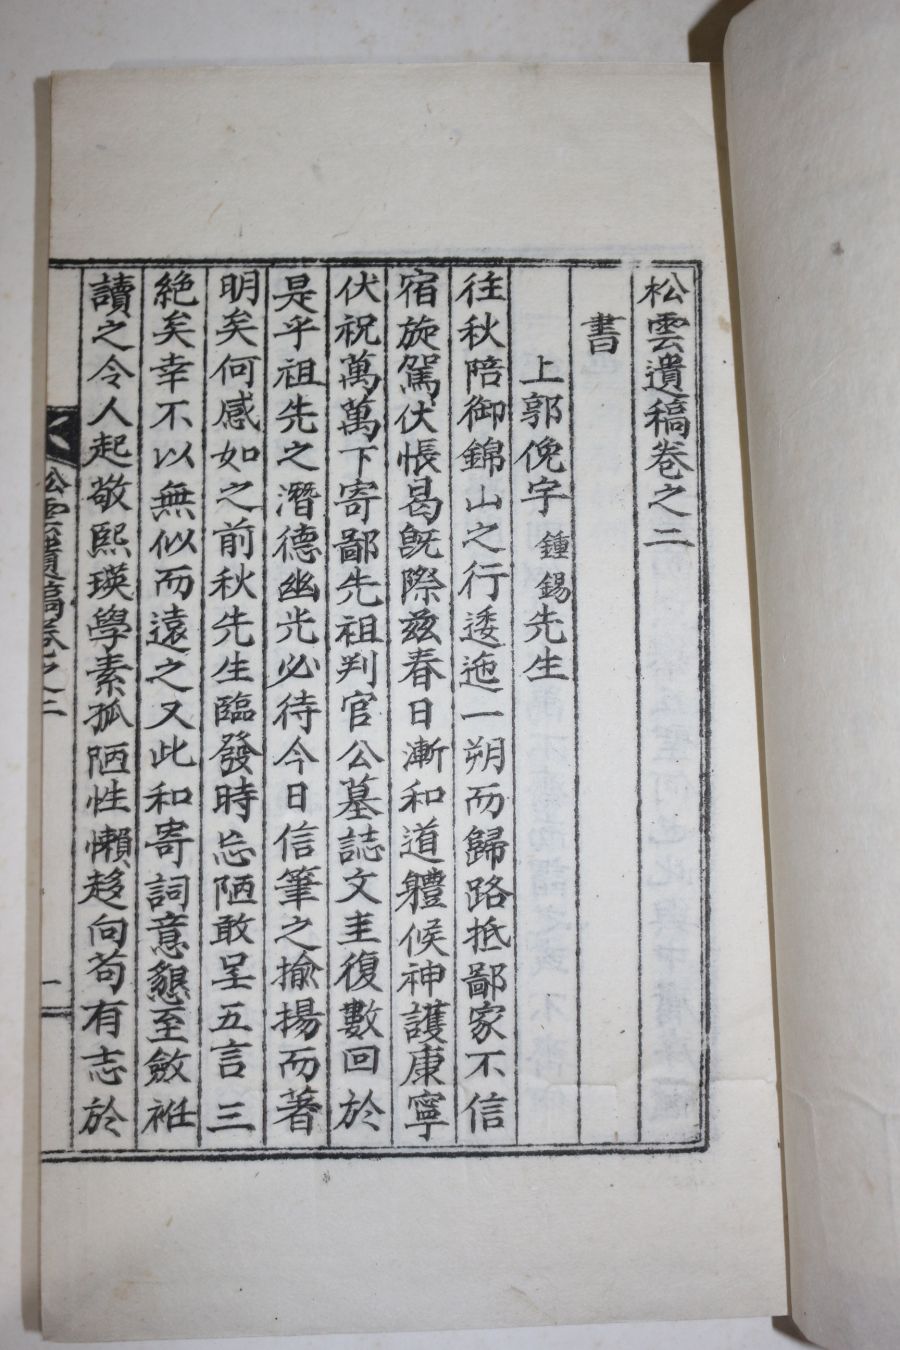 松雲遺稿卷之二
書
上郭俛宇鍾錫先生
往秋陪御錦山之行逶迤一朔而歸路抵鄙家不信
宿旋駕伏悵曷旣際玆春日漸和道軆候神護康寧
伏祝萬萬下寄鄙先祖判官公墓誌文圭復數回於
是乎祖先之潛德幽光必待今日信筆之揄揚而著
明矣何感如之前秋先生臨發時忘陋敢呈五言三
絶矣幸不以無似而遠之又此和寄詞意懇至斂袵
讀之令人起敬熙瑛學素孤陋性懶趍向苟有志於
松雲遺稿卷之二
一